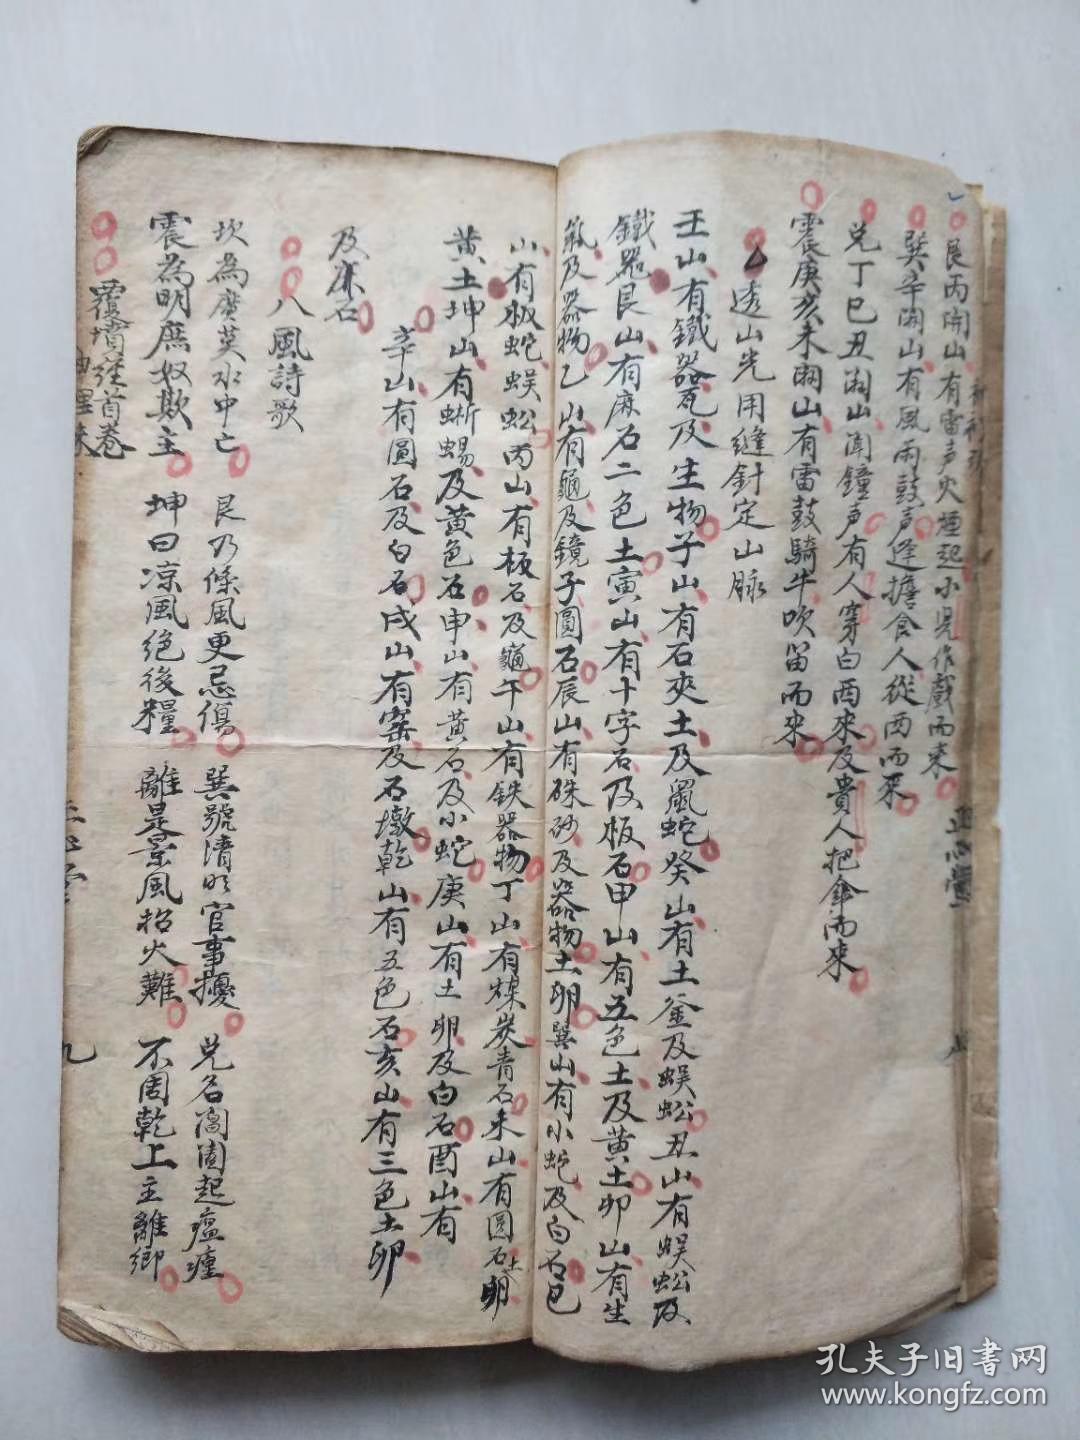 艮丙開山有雷声火烟起小児作戲而來
巽辛開山有風雨鼓声逢擔食人從西而來
兑丁巳丑開山聞鐘声有人穿白西來及貴人把傘而來
震庚亥未開山有雷鼓騎牛吹笛而來
透山光用縫針定山脉
壬山有鐵器瓦及生物子山有石夾土及鼠蛇癸山有土釜及蜈蚣丑山有蜈蚣及
鐵器艮山有麻石二色土寅山有十字石及板石甲山有五色土及黄土卯山有生
氣及器物乙山有龜及鏡子圓石辰山有硃砂及器物土卵巽山有小蛇及白石巳
山有板蛇蜈蚣丙山有板石及龜午山有鉄器物丁山有煤炭青石未山有圓石土卵
黄土坤山有蜥蜴及黄色石申山有黄石及小蛇庚山有土卵及白石酉山有
辛山有圓石及白石戌山有窑及石墩乾山有五色石亥山有三色土卵
及石
八風詩歌
坎為廣莫水中亡 艮乃條風更忌傷 巽號清明官事擾 兑名閶闔起瘟瘴
震為明庶奴欺主 坤曰凉風絶後糧 離是景風招火難 不周乾上主離鄉
覆墳經首巻
九
孔夫子旧書网
www.kongfz.com